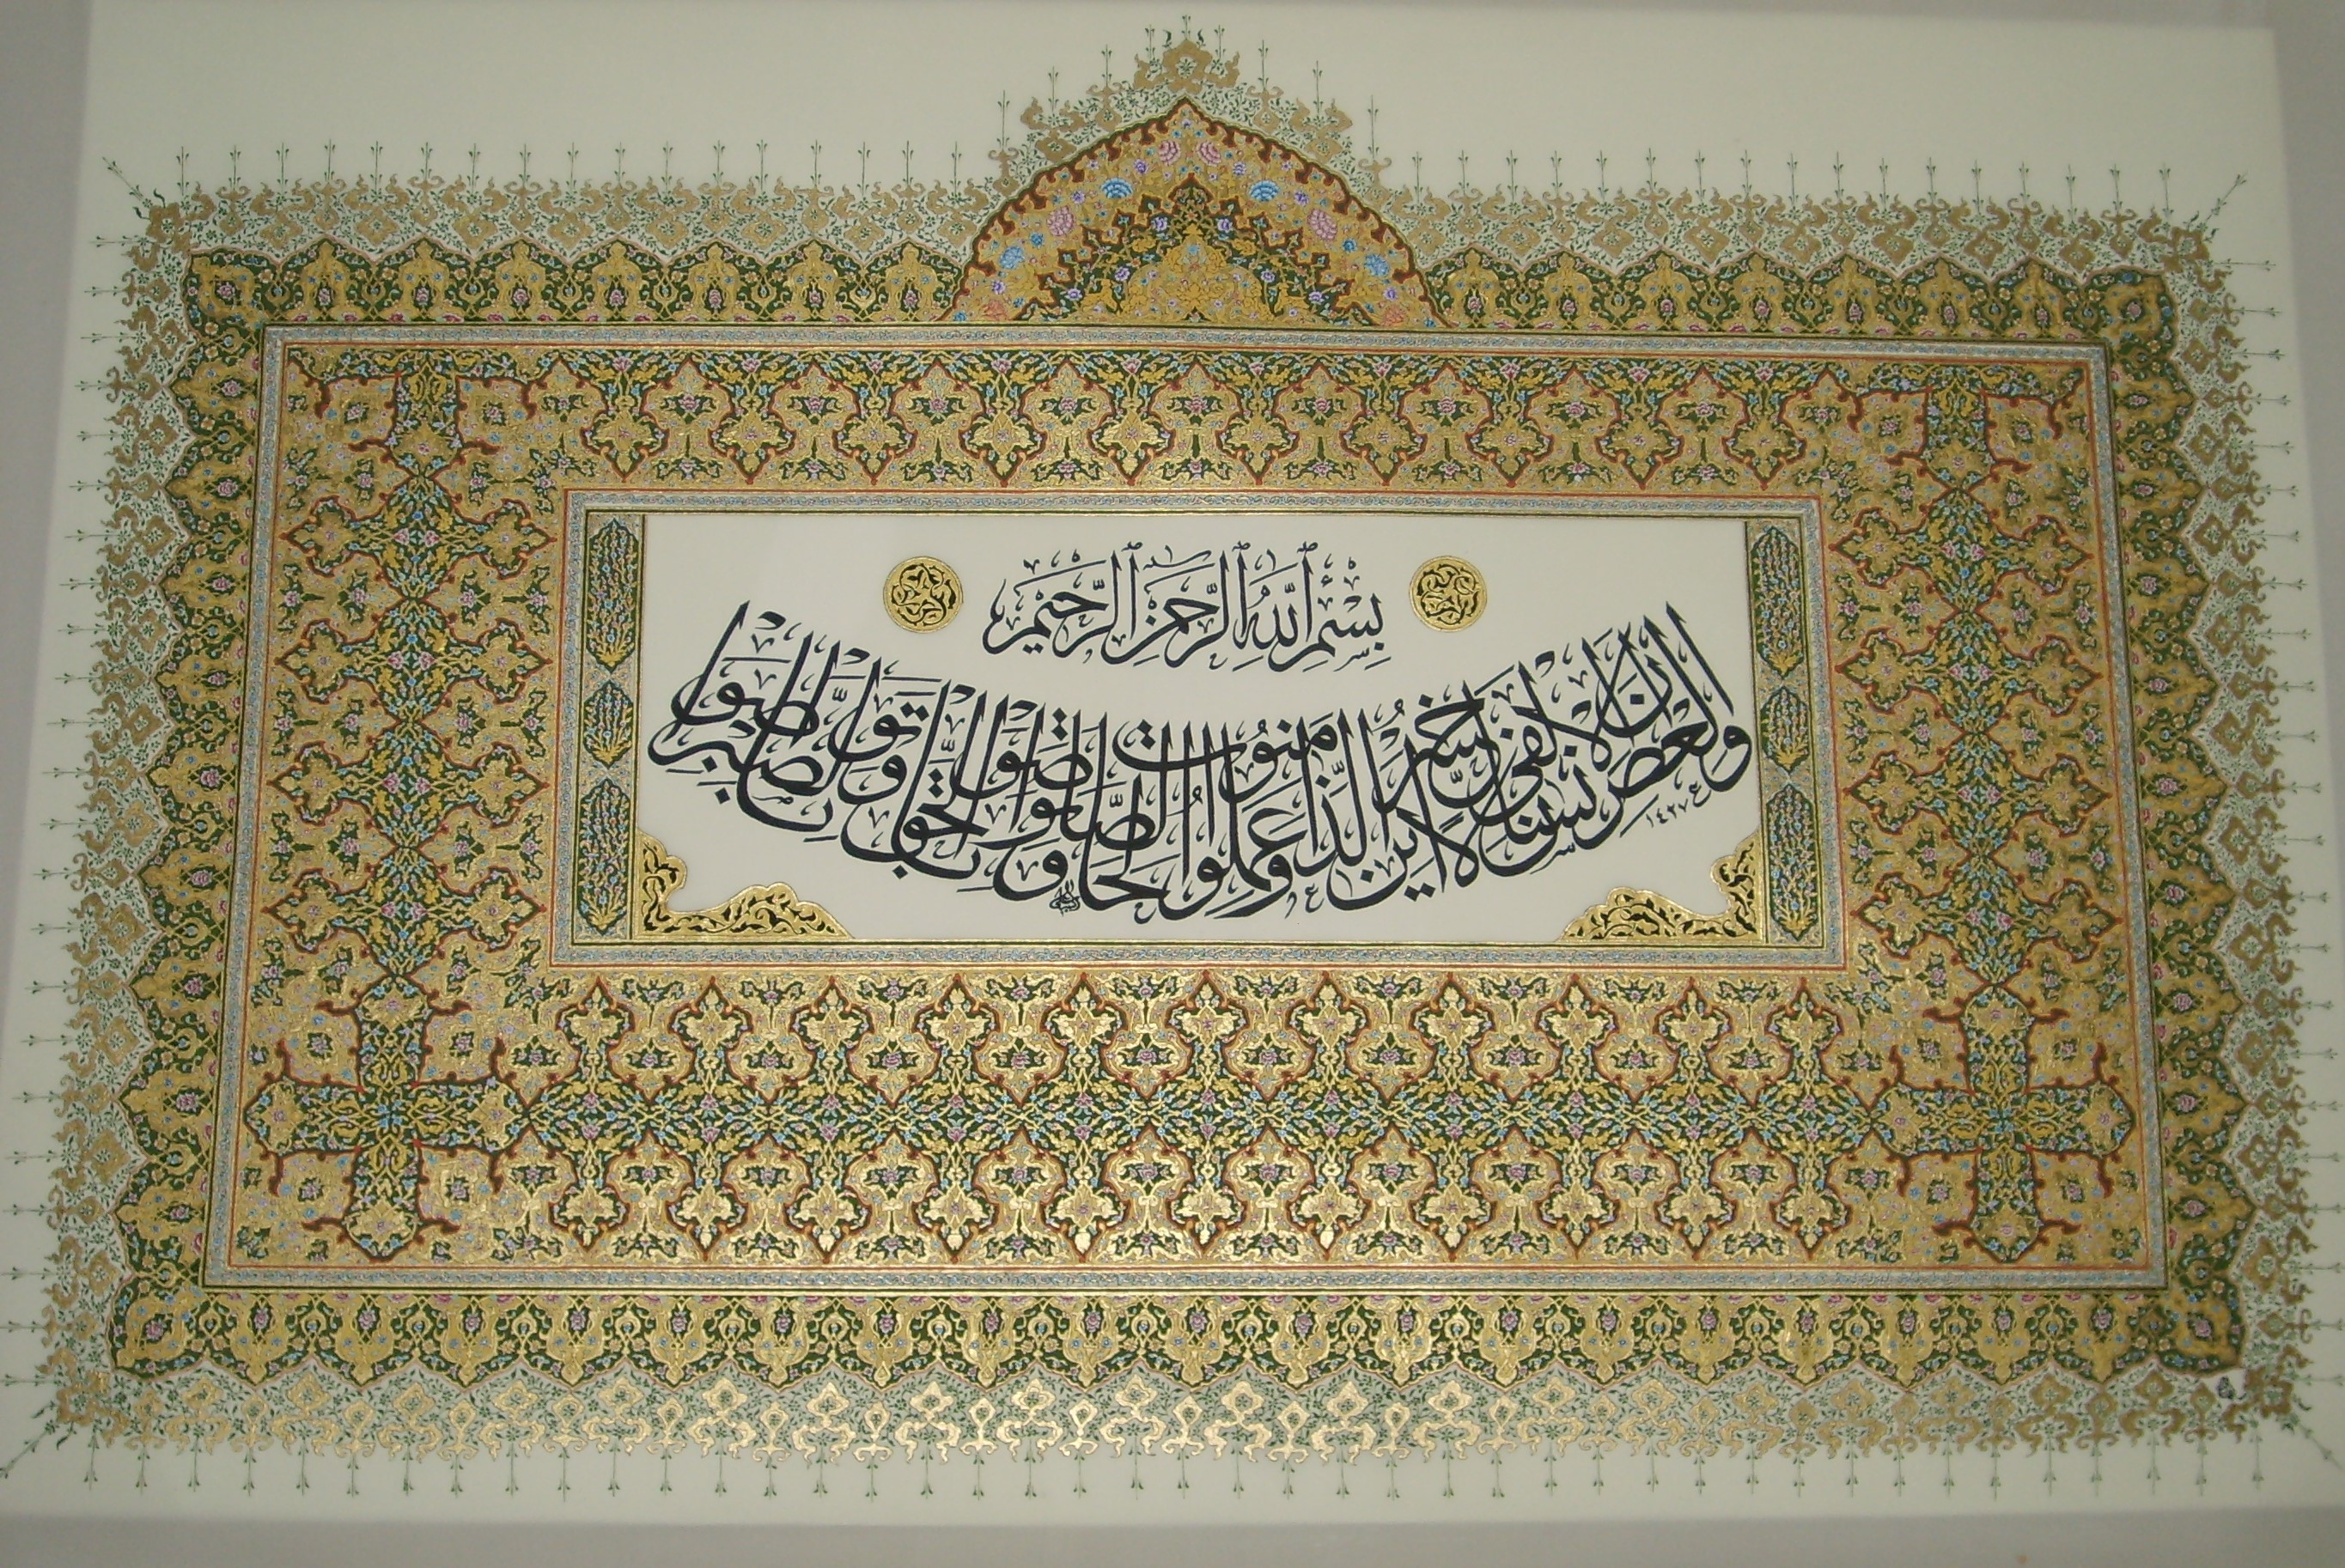 بِسْمِ ٱللَّهِ ٱلرَّحْمَٰنِ ٱلرَّحِيمِ
وَالْعَصْرِ إِنَّ الْإِنسَانَ لَفِي خُسْرٍ إِلَّا الَّذِينَ آمَنُوا وَعَمِلُوا الصَّالِحَاتِ وَتَوَاصَوْا بِالْحَقِّ وَتَوَاصَوْا بِالصَّبْرِ
١٤٢٧